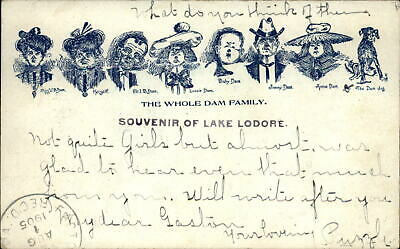 What do you think of them
Miss U.B. Dam. Herself. Mr. I.B. Dam. Lizzie Dam Baby Dam. Jimmy Dam. Annie Dam. The Dam dog
THE WHOLE DAM FAMILY.
SOUVENIR OF LAKE LODORE.
Not quite Girls but almost, was
glad to hear even that much
from you. Will write after you
my dear Gaston
Your loving Puzzle
AUG
1905